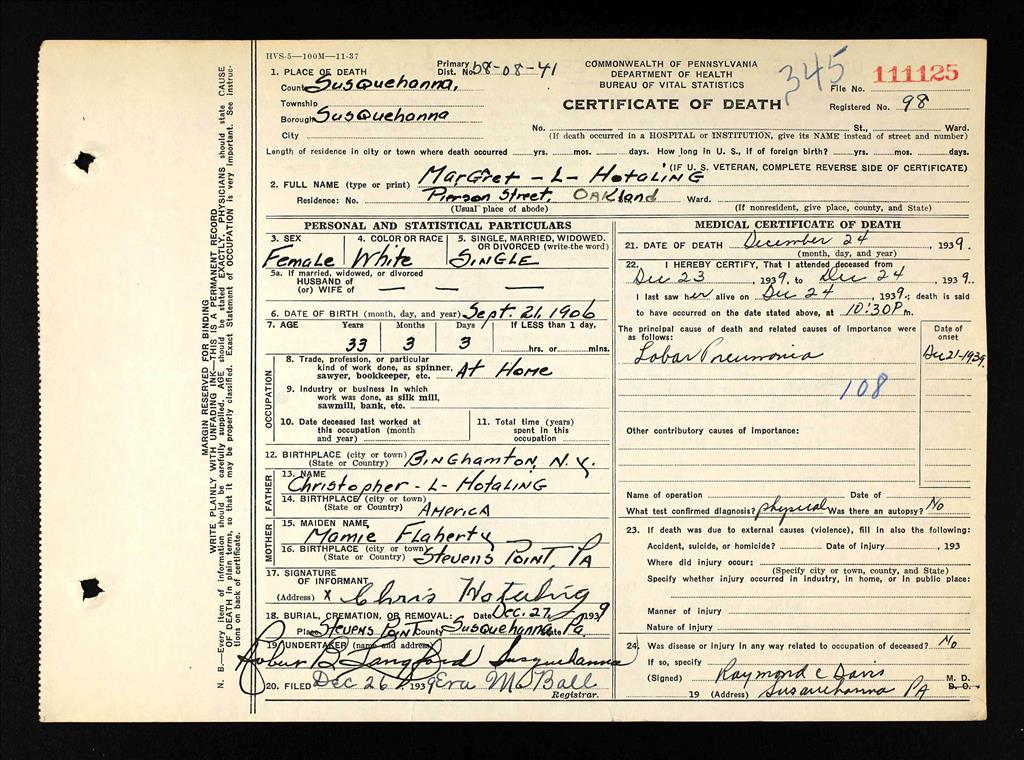 HVS-5—100M—11-37
Primary Dist. No. 58-08-41
COMMONWEALTH OF PENNSYLVANIA
DEPARTMENT OF HEALTH
BUREAU OF VITAL STATISTICS
CERTIFICATE OF DEATH
345
File No. 111125
Registered No. 98
1. PLACE OF DEATH
County Susquehanna,
Township
Borough Susquehanna
City
No. St., Ward.
(If death occurred in a HOSPITAL or INSTITUTION, give its NAME instead of street and number)
Length of residence in city or town where death occurred yrs. mos. days. How long in U. S., if of foreign birth? yrs. mos. days.
(IF U. S. VETERAN, COMPLETE REVERSE SIDE OF CERTIFICATE)
2. FULL NAME (type or print) Margret - L - Hotaling
Residence: No. Pierson Street, Oakland Ward.
(Usual place of abode) (If nonresident, give place, county, and State)
PERSONAL AND STATISTICAL PARTICULARS
3. SEX Female
4. COLOR OR RACE White
5. SINGLE, MARRIED, WIDOWED, OR DIVORCED (write the word) Single
5a. If married, widowed, or divorced
HUSBAND of
(or) WIFE of — — —
6. DATE OF BIRTH (month, day, and year) Sept. 21, 1906
7. AGE Years Months Days If LESS than 1 day,
33 3 3 hrs. or mins.
OCCUPATION
8. Trade, profession, or particular
kind of work done, as spinner,
sawyer, bookkeeper, etc. At Home
9. Industry or business in which
work was done, as silk mill,
sawmill, bank, etc.
10. Date deceased last worked at
this occupation (month
and year)
11. Total time (years)
spent in this
occupation
12. BIRTHPLACE (city or town)
(State or Country) Binghamton, N.Y.
FATHER
13. NAME
Christopher - L - Hotaling
14. BIRTHPLACE (city or town)
(State or Country) America
MOTHER
15. MAIDEN NAME
Mamie Flaherty
16. BIRTHPLACE (city or town)
(State or Country) Stevens Point, Pa
17. SIGNATURE
OF INFORMANT
(Address) x Chris Hotaling
18. BURIAL, CREMATION, OR REMOVAL: Date Dec. 27, 1939
Place Stevens Point County Susquehanna State Pa.
19. UNDERTAKER (name and address)
B. Langford Susquehanna
20. FILED Dec 26, 1939 Eva M. Ball
Registrar.
MEDICAL CERTIFICATE OF DEATH
21. DATE OF DEATH December 24, 1939.
(month, day, and year)
22. I HEREBY CERTIFY, That I attended deceased from
Dec 23 1939, to Dec 24 1939.
I last saw her alive on Dec 24 1939.; death is said
to have occurred on the date stated above, at 10:30 P m.
The principal cause of death and related causes of importance were
as follows:
Date of
onset
Lobar Pneumonia Dec 21-1939.
108
Other contributory causes of importance:
Name of operation Date of
What test confirmed diagnosis? physical Was there an autopsy? No
23. If death was due to external causes (violence), fill in also the following:
Accident, suicide, or homicide? Date of injury , 193
Where did injury occur:
(Specify city or town, county, and State)
Specify whether injury occurred in industry, in home, or in public place:
Manner of injury
Nature of injury
24. Was disease or injury in any way related to occupation of deceased? No
If so, specify
(Signed) Raymond C Davis M. D.
19 (Address) Susquehanna Pa D. O.
MARGIN RESERVED FOR BINDING
WRITE PLAINLY WITH UNFADING INK—THIS IS A PERMANENT RECORD
N. B.—Every item of information should be carefully supplied. AGE should be stated EXACTLY. PHYSICIANS should state CAUSE
OF DEATH in plain terms, so that it may be properly classified. Exact Statement of OCCUPATION is very important. See instruc-
tions on back of certificate.